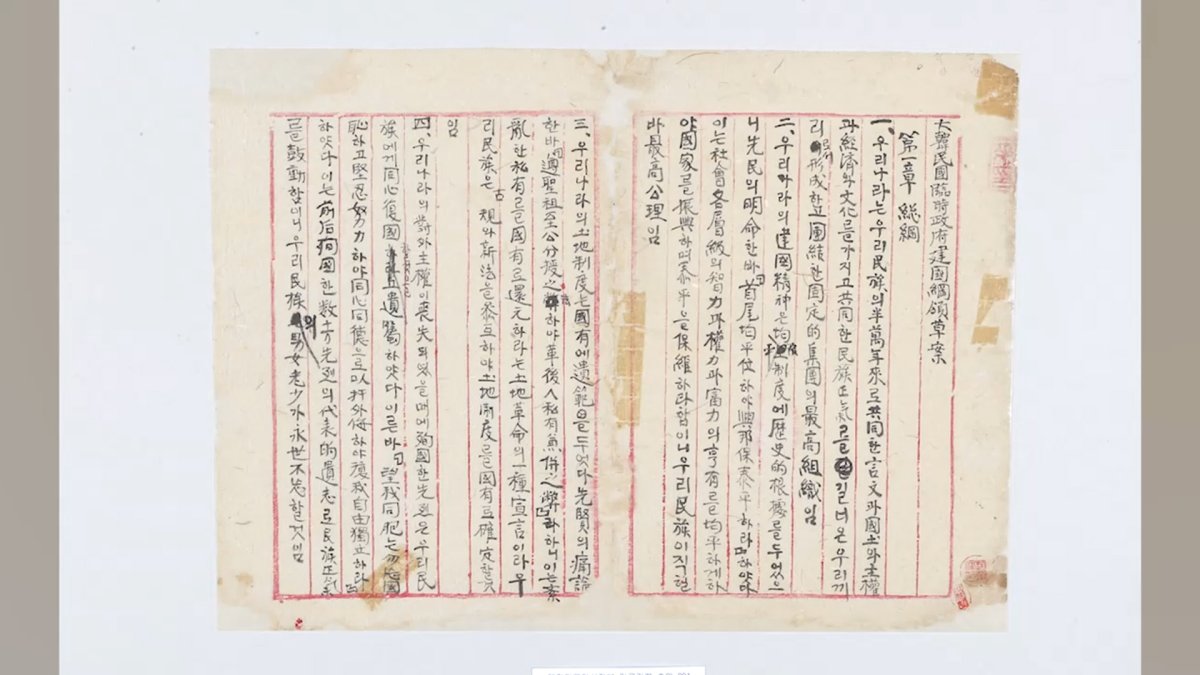 大韓民國臨時政府建國綱領草案
第一章 総綱
一、우리나라는우리民族의半萬年來로共同한言文과國土와主權
과經濟와文化를가지고共同한民族正氣를길너온우리끼
리로서形成하고團結한固定的集團의最高組織임
二、우리나라의建國精神은均制度에歷史的根據를두었으
니先民의明命한바首尾均平位하야興邦保泰平하리라하얏다
이는社會各層級의智力과權力과富力의享有를均平하게하
야國家를振興하며泰平을保維하라함이니우리民族이직힐
바最高公理임
三、우리나라의土地制度는國有에遺範을두엇다先賢의痛論
한바遵聖祖至公分授之하야革後人私有兼併之弊라하니이는紊
亂한私有를國有로還元하라는土地革命의一種宣言이라우
리民族은古規와新法을參互하야土地制度를國有로確定할것
임
四、우리나라의對外主權이喪失되였을때에殉國한先烈은우리民
族에게同心復國遺囑하얏다이른바望我同胞는勿忘國
恥하고堅忍努力하야同心同德으로以扞外侮하야復我自由獨立하라
하얏다이는前後殉國한數十萬先烈의代表的遺志로民族正氣
를鼓動함이니우리民族의男女老少가永世不忘할것임